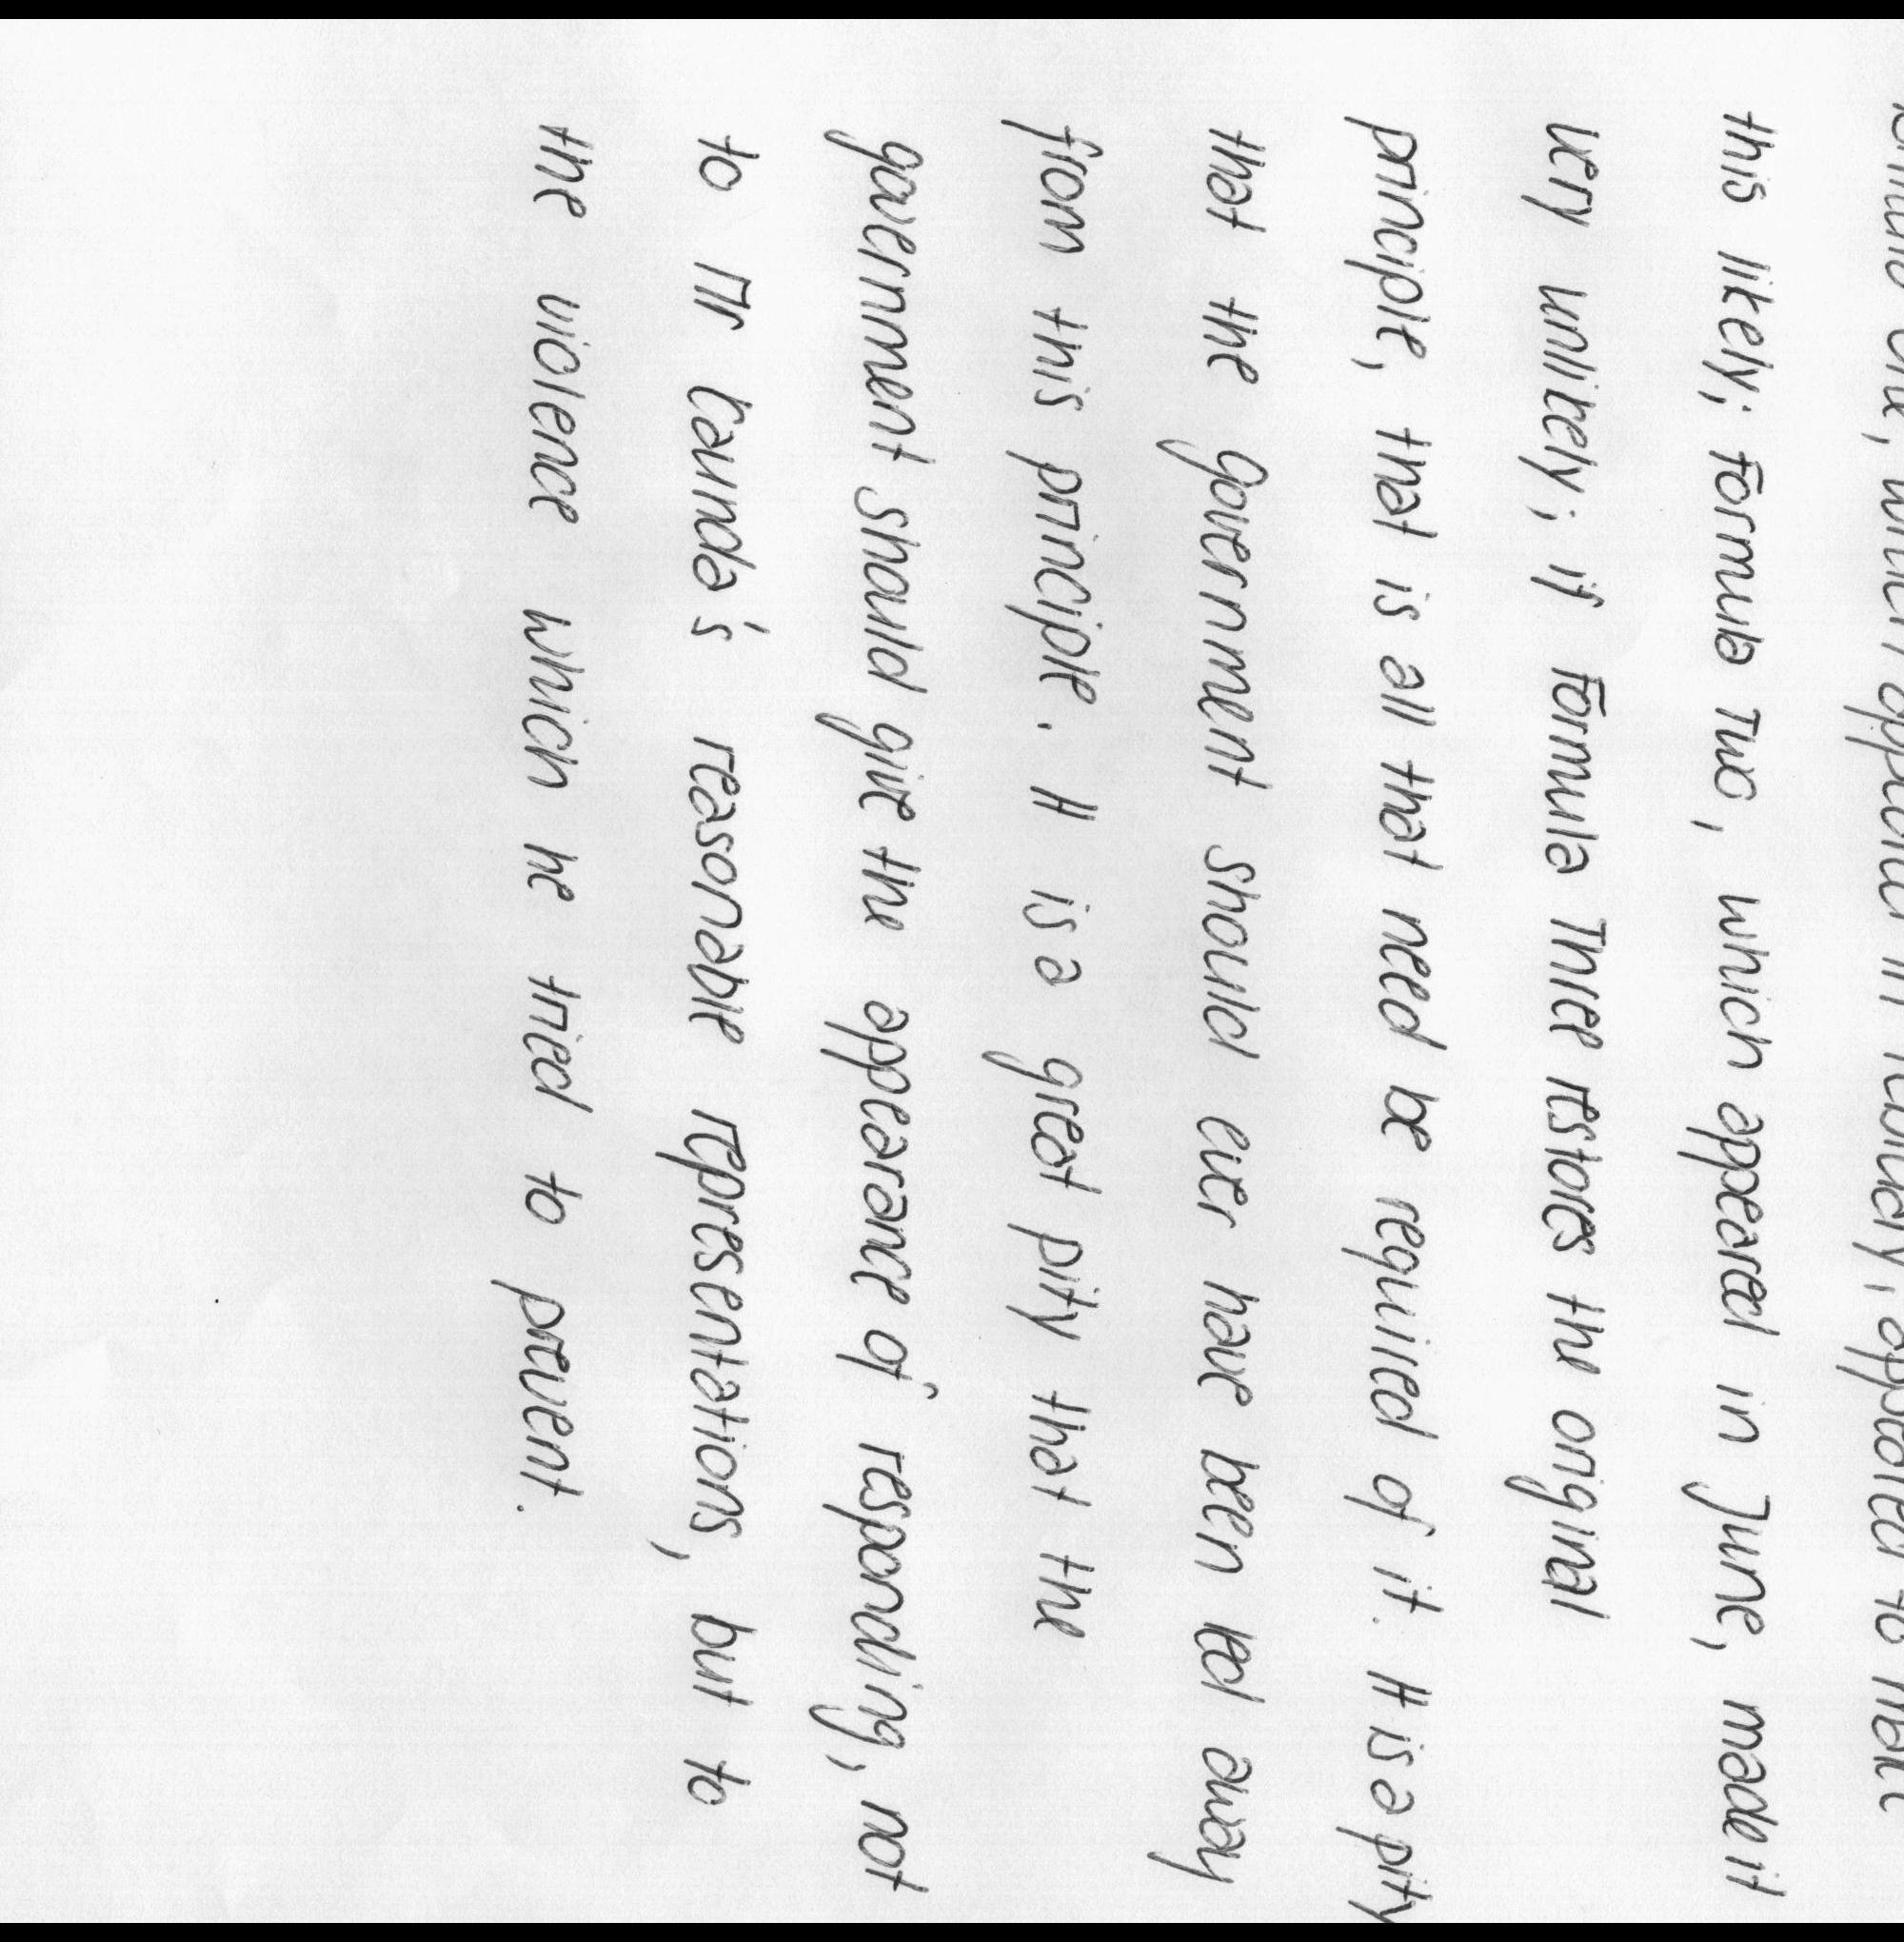 One, which appeared in February, appeared to make
this likely; Formula Two, which appeared in June, made it
very unlikely; if Formula Three restores the original
principle, that is all that need be required of it. It is a pity
that the government should ever have been led away
from this principle. It is a great pity that the
government should give the appearance of responding, not
to Mr Kaunda's reasonable representations, but to
the violence which he tried to prevent.